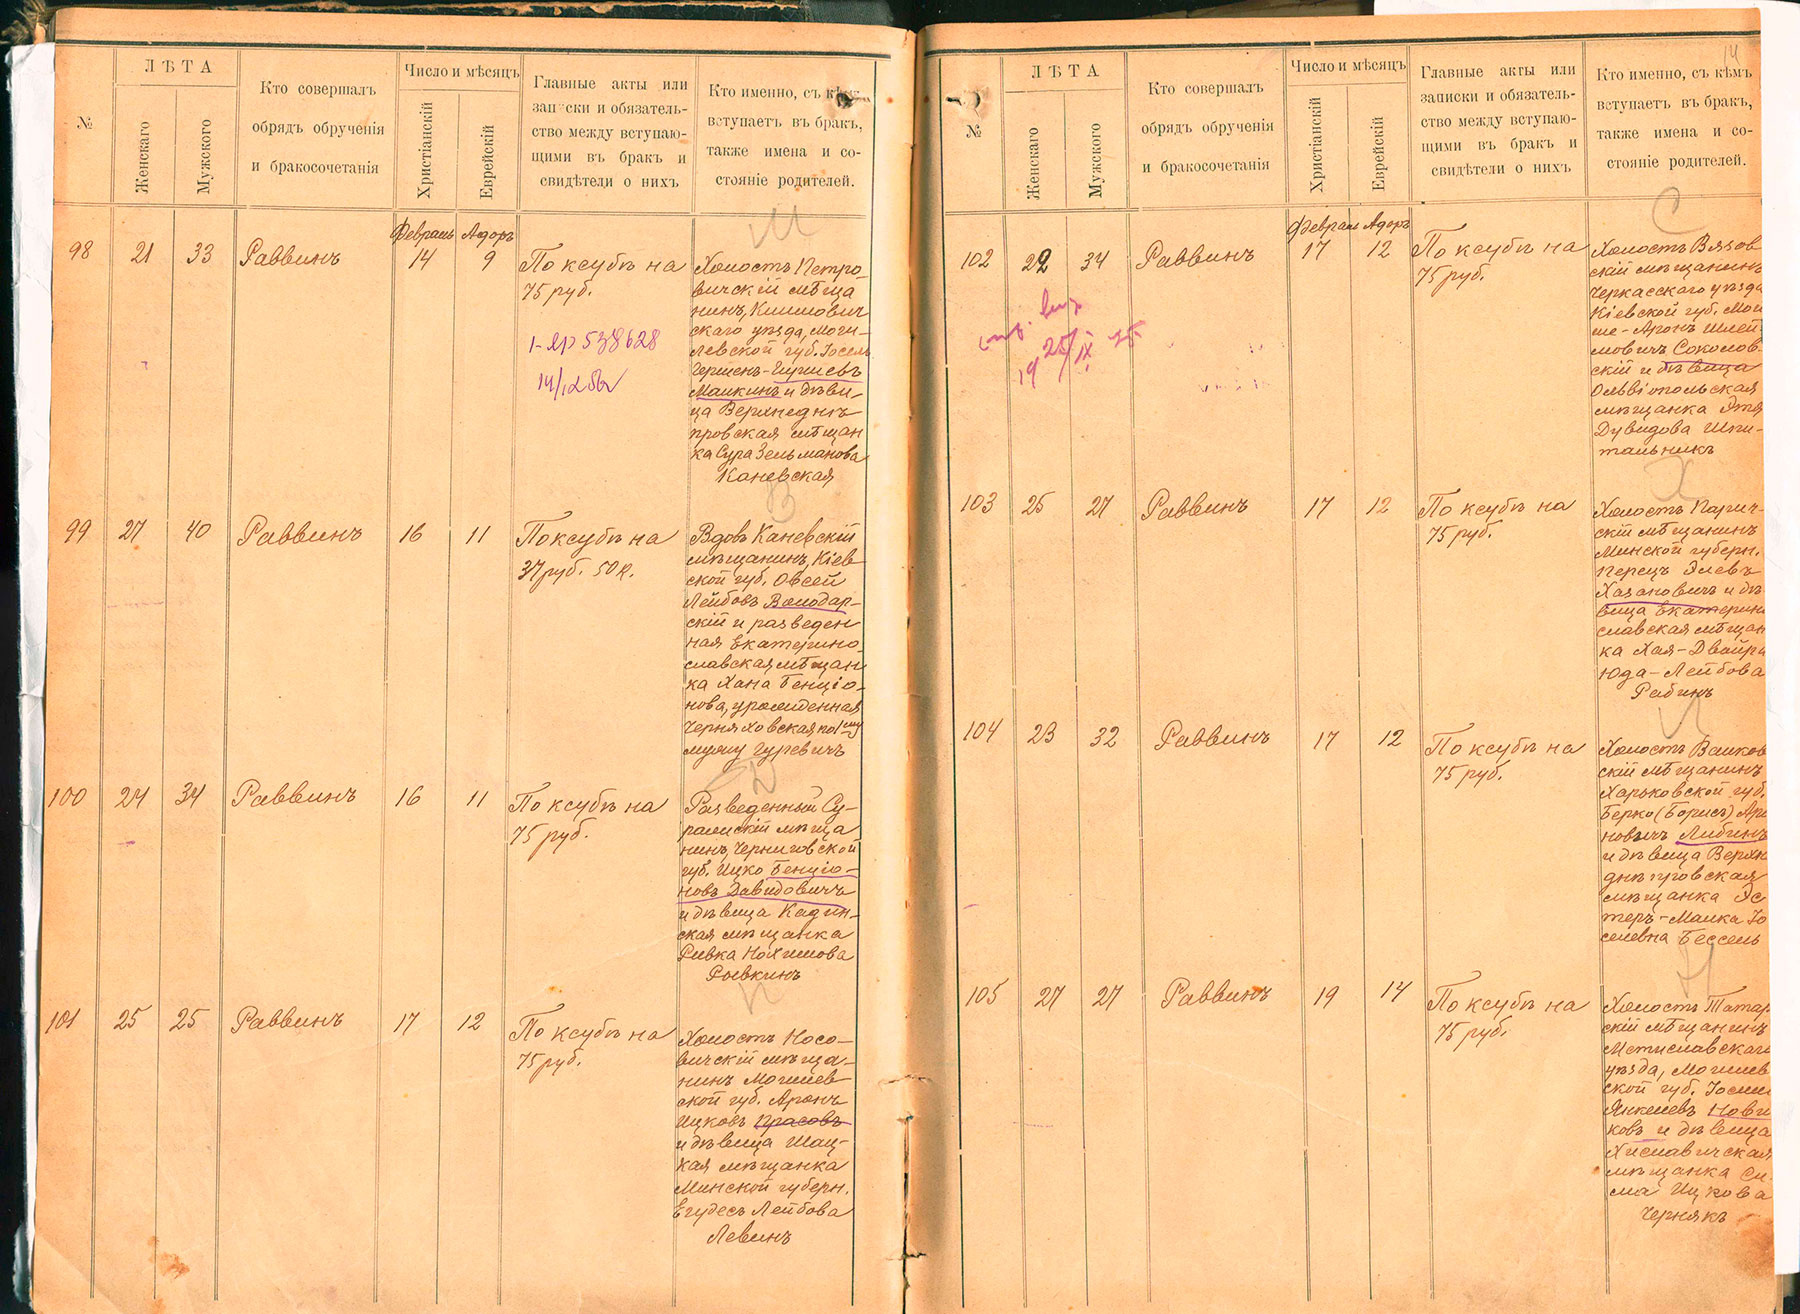 №
ЛѢТА
Женскаго
Мужского
Кто совершалъ
обрядъ обрученія
и бракосочетанія
Число и мѣсяцъ
Христіанскій
Еврейскій
Главные акты или
записки и обязатель-
ство между вступаю-
щими въ бракъ и
свидѣтели о нихъ
Кто именно, съ кѣмъ
вступаетъ въ бракъ,
также имена и со-
стояніе родителей.
98
21
33
Раввинъ
Февраль
14
Адоръ
9
По ксубѣ на
75 руб.
1-ЯР 538628
Холостъ Петро-
вичскій мѣща
нинъ, Климович
скаго уѣзда, Моги-
левской губ. Іосель
Гершен-Гиршевъ
Малкинъ и дѣви-
ца Верхнеднѣ
провская мѣщан
ка Сура Зельманова
Каневская
99
27
40
Раввинъ
16
11
По ксубѣ на
37 руб. 50 к.
Вдовъ Каневскій
мѣщанинъ, Кіев
ской губ. Овсей
Лейбовъ Володар-
скій и разведен
ная Екатерино
славская мѣщан
ка Хана Бенціо-
нова, урожденная
Черняховская по 1му
мужу Гуревичъ
100
24
34
Раввинъ
16
11
По ксубѣ на
75 руб.
Разведенный Су-
ражскій мѣща
нинъ, Черниговской
губ. Ицко Бенціо-
новъ Давидовичъ
и дѣвица Кадин-
ская мѣщанка
Ривка Нохимова
Рывкинъ
101
25
25
Раввинъ
17
12
По ксубѣ на
75 руб.
Холостъ Носо-
вичскій мѣща-
нинъ Могилев
ской губ. Аронъ
Ицковъ Прасовъ
и дѣвица Шац-
кая мѣщанка
Минской губерн.
Егудесъ Лейбова
Левинъ
14
№
ЛѢТА
Женскаго
Мужского
Кто совершалъ
обрядъ обрученія
и бракосочетанія
Число и мѣсяцъ
Христіанскій
Еврейскій
Главные акты или
записки и обязатель-
ство между вступаю-
щими въ бракъ и
свидѣтели о нихъ
Кто именно, съ кѣмъ
вступаетъ въ бракъ,
также имена и со-
стояніе родителей.
102
22
34
Раввинъ
Февраль
17
Адоръ
12
По ксубѣ на
75 руб.
Холостъ Вязов
скій мѣщанинъ
Черкасскаго уѣзда
Кіевской губ. Мой
ше-Аронъ Шлей-
мовичъ Соколов-
скій и дѣвица
Ольвіопольская
мѣщанка Этя
Дувидова Шпи-
тальникъ
103
25
27
Раввинъ
17
12
По ксубѣ на
75 руб.
Холостъ Парич-
скій мѣщанинъ
Минской губерн.
Перецъ Элевъ
Хазановичъ и дѣ-
вица Екатерин
славская мѣщан
ка Хая-Двойра
Юда-Лейбова
Рабинъ
104
23
32
Раввинъ
17
12
По ксубѣ на
75 руб.
Холостъ Валков
скій мѣщанинъ
Харьковской губ.
Берко (Борисъ) Аро
новичъ Либинъ
и дѣвица Верхн
днѣпровская
мѣщанка Эс
теръ-Малка Іо
селевна Бессель
105
27
27
Раввинъ
19
14
По ксубѣ на
75 руб.
Холостъ Татар
скій мѣщанинъ
Мстиславскаго
уѣзда, Могилев
ской губ. Іосель
Янкелевъ Нови
ковъ и дѣвица
Хиславичская
мѣщанка Си-
ма Ицкова
Чернякъ